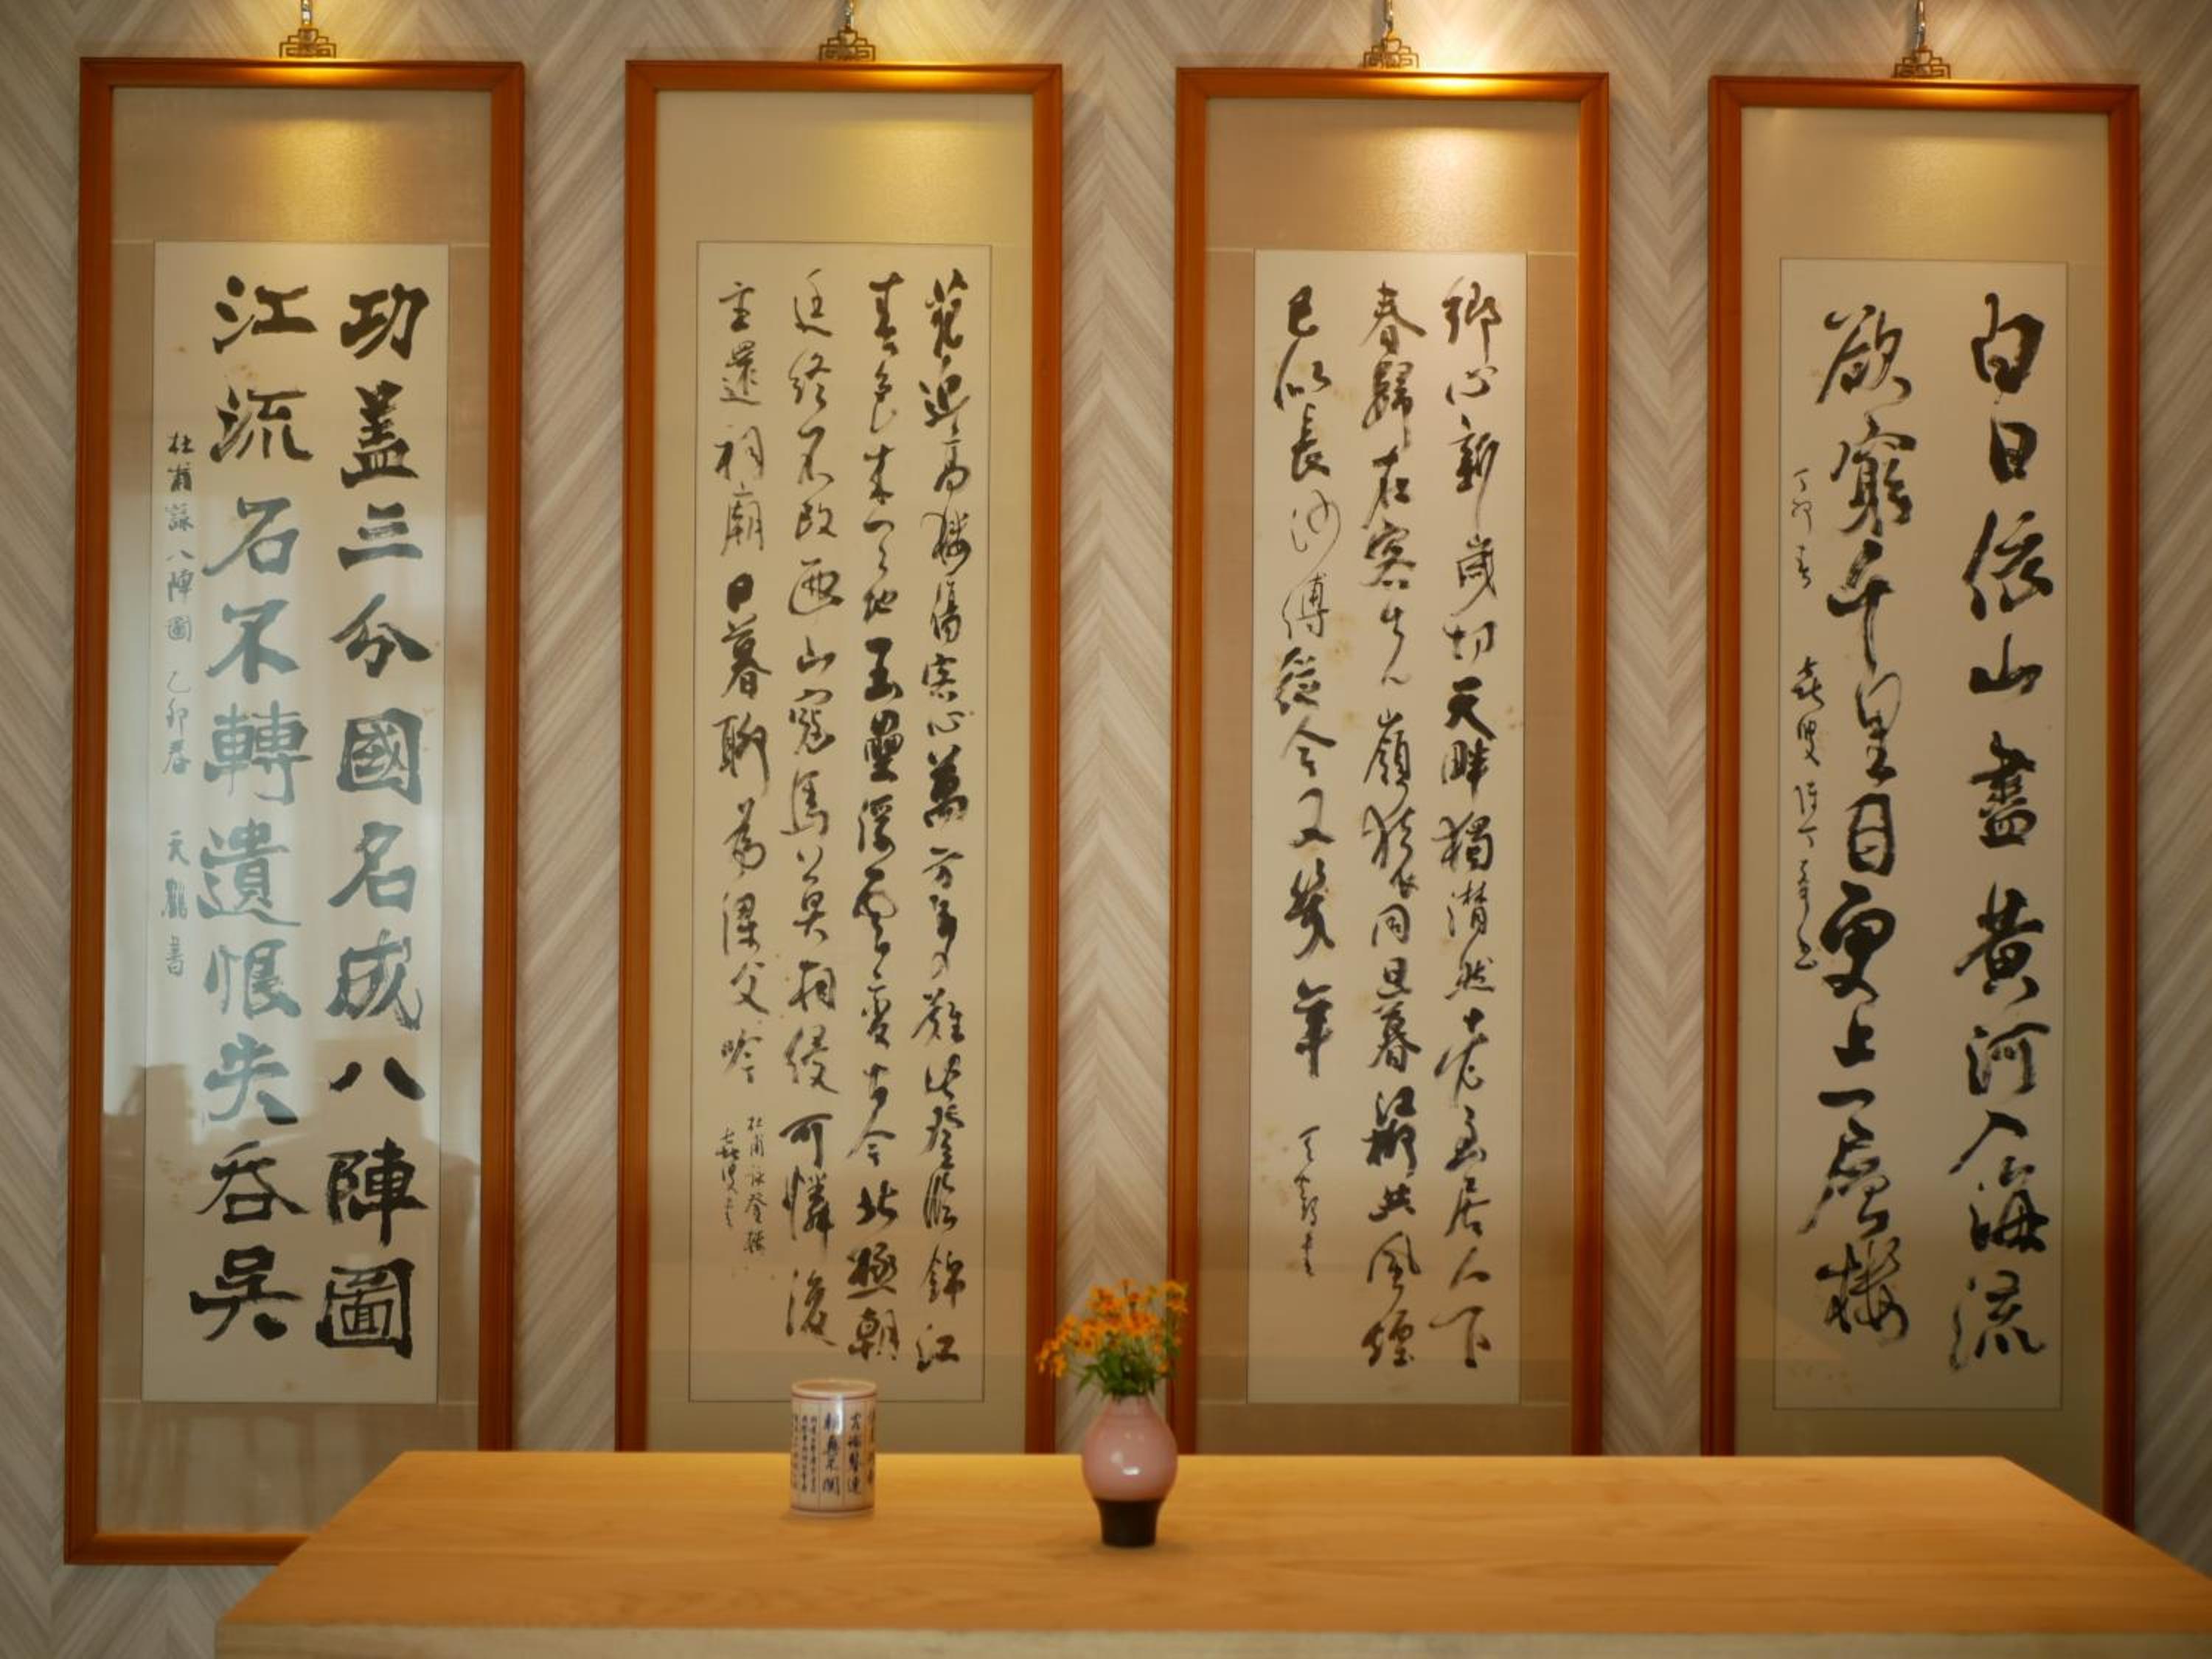 白日依山盡黃河入海流
欲窮千里目更上一層樓
丁卯春 喜叟
鄉心新歲切天畔獨潸然老至居人下
春歸在客先嶺猿同旦暮江柳共風煙
已似長沙傅從今又幾年
花近高樓傷客心萬方多難此登臨錦江
春色來天地玉壘浮雲變古今北極朝
廷終不改西山寇盜莫相侵可憐後
主還祠廟日暮聊為梁父吟
杜甫詠登樓
喜叟書
功盖三分國名成八陣圖
江流石不轉遺恨失吞吳
杜甫詠八陣圖 乙卯春 天鶴書